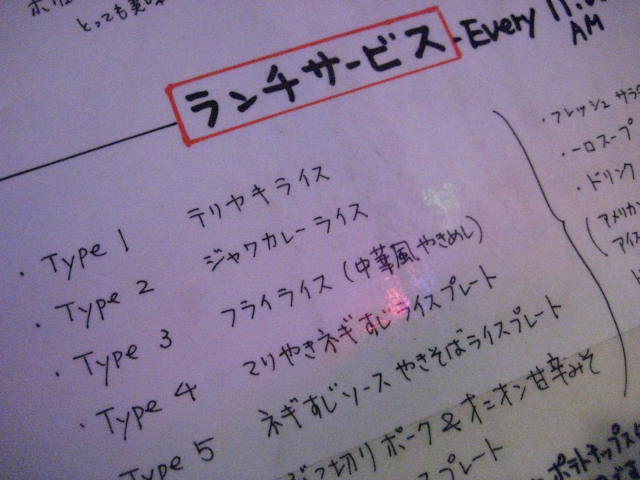 とっても美味
ランチサービス - Every 11:00 AM
・Type 1 テリヤキライス
・Type 2 ジャワカレーライス
・Type 3 フライライス (中華風やきめし)
・Type 4 てりやきネギすじライスプレート
・Type 5 ネギすじソースやきそばライスプレート
ぶつ切りポーク & オニオン甘辛みそ
スプレート
・フレッシュサラダ
・一口スープ
・ドリンク
(アメリカン
アイス
ポテトチップス